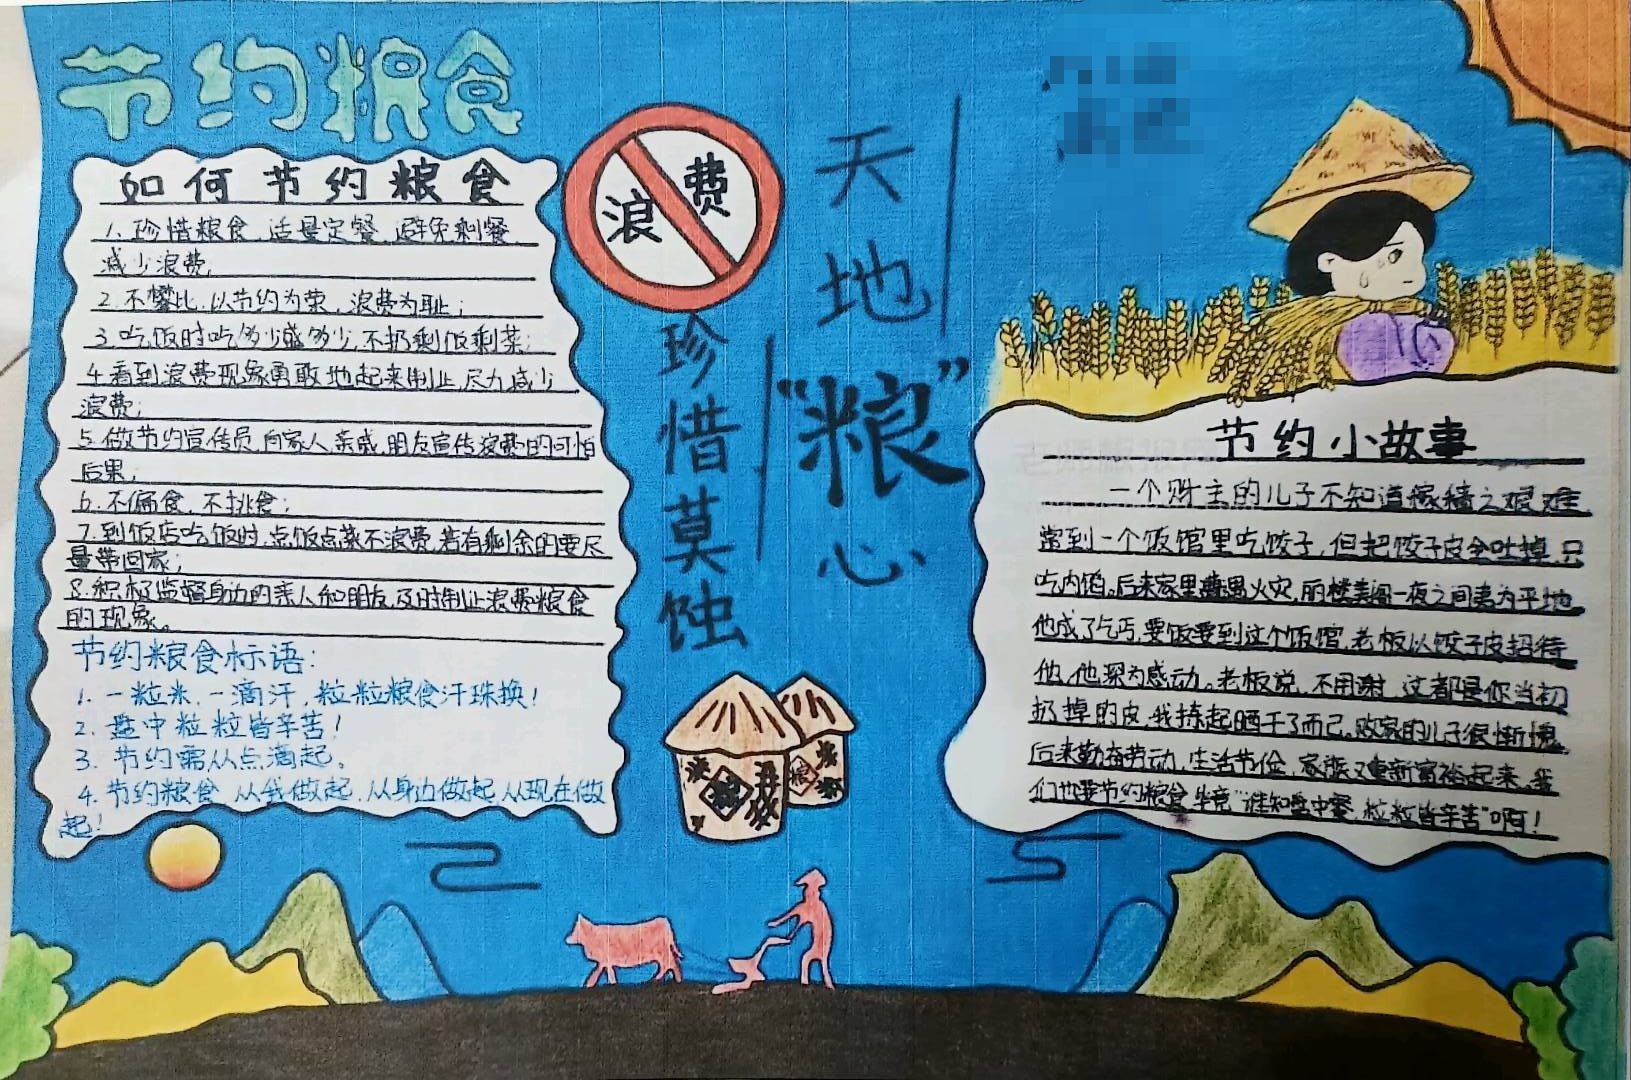 节约粮食
如何节约粮食
1. 珍惜粮食,适量定餐,避免剩餐,
减少浪费;
2. 不攀比,以节约为荣,浪费为耻;
3. 吃饭时吃多少盛多少,不扔剩饭剩菜;
4. 看到浪费现象勇敢地起来制止,尽力减少
浪费;
5. 做节约宣传员,向家人、亲戚、朋友宣传浪费的可怕
后果;
6. 不偏食,不挑食;
7. 到饭店吃饭时,点饭点菜不浪费,若有剩余的要尽
量带回家;
8. 积极监督身边的亲人和朋友,及时制止浪费粮食
的现象。
节约粮食标语:
1. 一粒米,一滴汗,粒粒粮食汗珠换!
2. 盘中粒粒皆辛苦!
3. 节约需从点滴起。
4. 节约粮食,从我做起,从身边做起,从现在做
起!
浪费
天地“粮”心
珍惜莫蚀
粮
粮
节约小故事
一个财主的儿子不知道稼穑之艰难,
常到一个饭馆里吃饺子,但把饺子皮全吐掉,只
吃肉馅。后来家里遭遇火灾,丽楼美阁一夜之间夷为平地,
他成了乞丐,要饭要到这个饭馆,老板以饺子皮招待
他,他深为感动。老板说,不用谢,这都是你当初
扔掉的皮,我拣起晒干了而已。败家的儿子很惭愧,
后来勤奋劳动,生活节俭,家渐又重新富裕起来。我
们也要节约粮食,毕竟“谁知盘中餐,粒粒皆辛苦”啊!